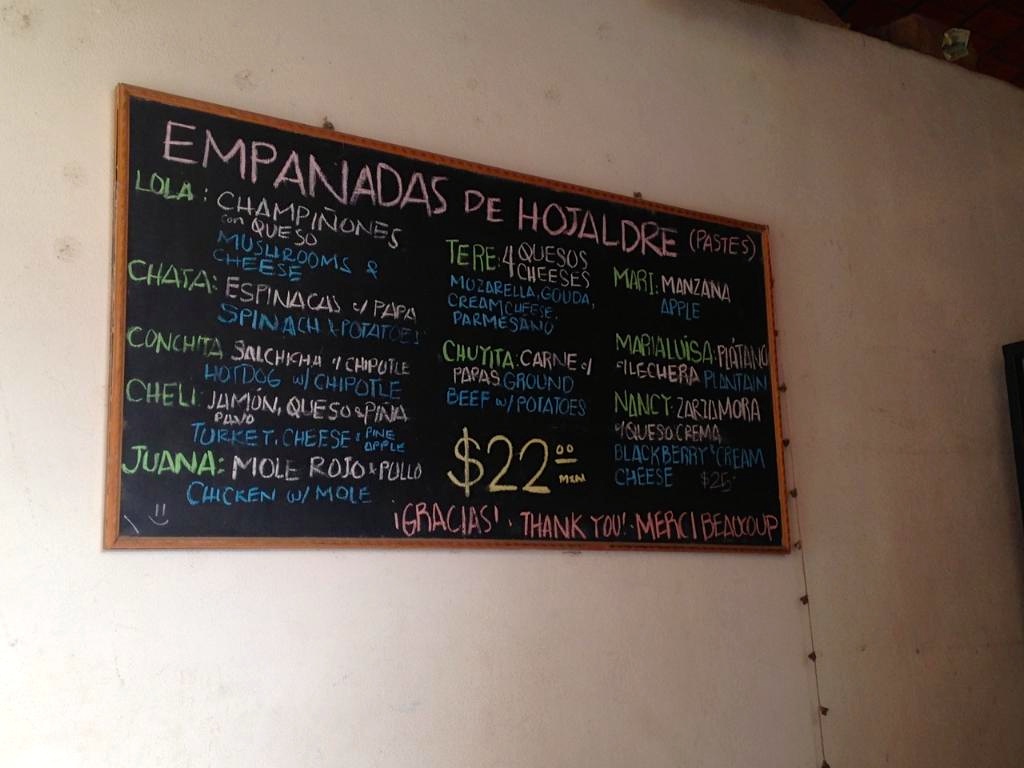 EMPANADAS DE HOJALDRE (PASTES)
LOLA: CHAMPIÑONES
con QUESO
MUSHROOMS &
CHEESE
CHATA: ESPINACAS c/ PAPA
SPINACH & POTATOES
CONCHITA SALCHICHA c/ CHIPOTLE
HOTDOG w/ CHIPOTLE
CHELI: JAMÓN, QUESO & PIÑA
PAVO
TURKEY, CHEESE & PINE
APPLE
JUANA: MOLE ROJO & POLLO
CHICKEN w/ MOLE
TERE: 4 QUESOS
CHEESES
MOZARELLA, GOUDA,
CREAM CHEESE,
PARMESANO
CHUYITA: CARNE c/
PAPAS GROUND
BEEF w/ POTATOES
$22.00
MXN
MARI: MANZANA
APPLE
MARIALUISA: PLÁTANO
c/ LECHERA PLANTAIN
NANCY: ZARZAMORA
c/ QUESO CREMA
BLACKBERRY & CREAM
CHEESE $25
¡GRACIAS! · THANK YOU! · MERCI BEAUCOUP